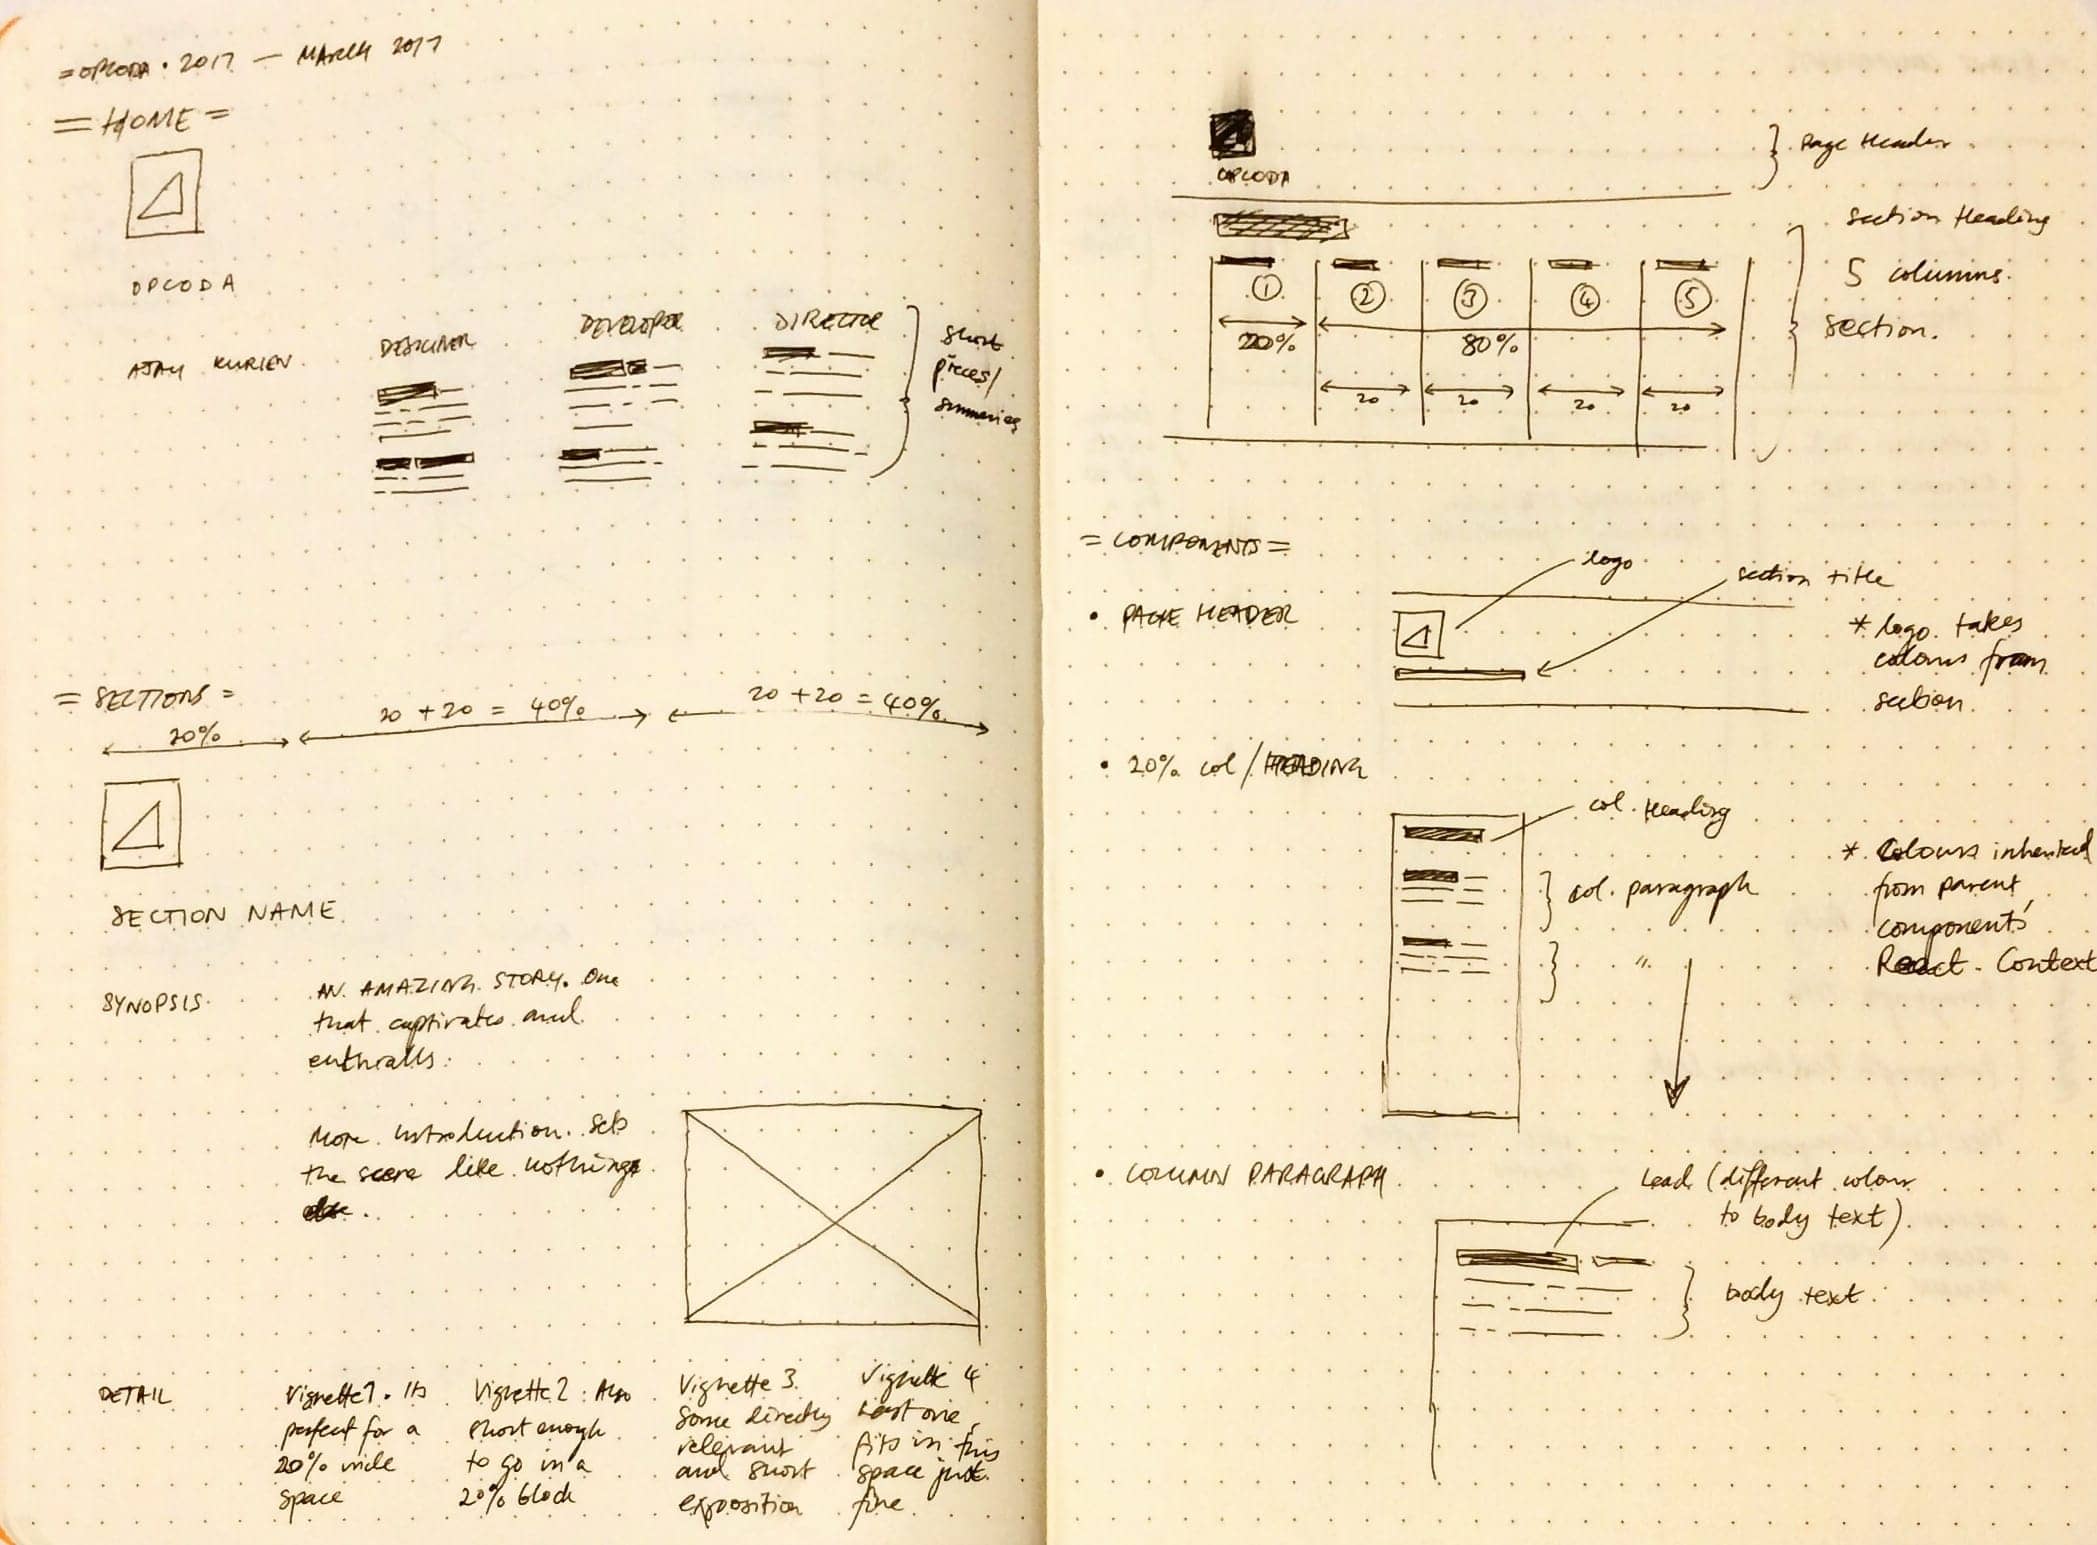 =OPCODA · 2017 — MARCH 2017
= HOME =
OPCODA
AJAY KURIEN
DESIGNER
DEVELOPER
DIRECTOR
short
pieces/
summaries
= SECTIONS =
20%
20 + 20 = 40%
20 + 20 = 40%
SECTION NAME
SYNOPSIS
AN AMAZING STORY. One
that captivates and
enthralls.
More introduction. Sets
the scene like nothing
else.
DETAIL
Vignette 1. Its
perfect for a
20% wide
space
Vignette 2: Also
short enough
to go in a
20% block
Vignette 3
Some directly
relevant
and short
exposition
Vignette 4
Last one,
fits in this
space just
fine.
OPCODA
Page Header
section Heading
5 columns
section.
1
2
3
4
5
20%
80%
20
20
20
20
= COMPONENTS =
• PAGE HEADER
logo
section title
* logo takes
colours from
section
• 20% col / HEADING
col. Heading
col. paragraph
"
* Colours inherited
from parent
components'
React. Context
• COLUMN PARAGRAPH
Lead (different colour
to body text)
body text